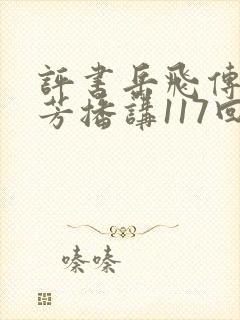 評書岳飛傳
芳播講117回
嗪嗪